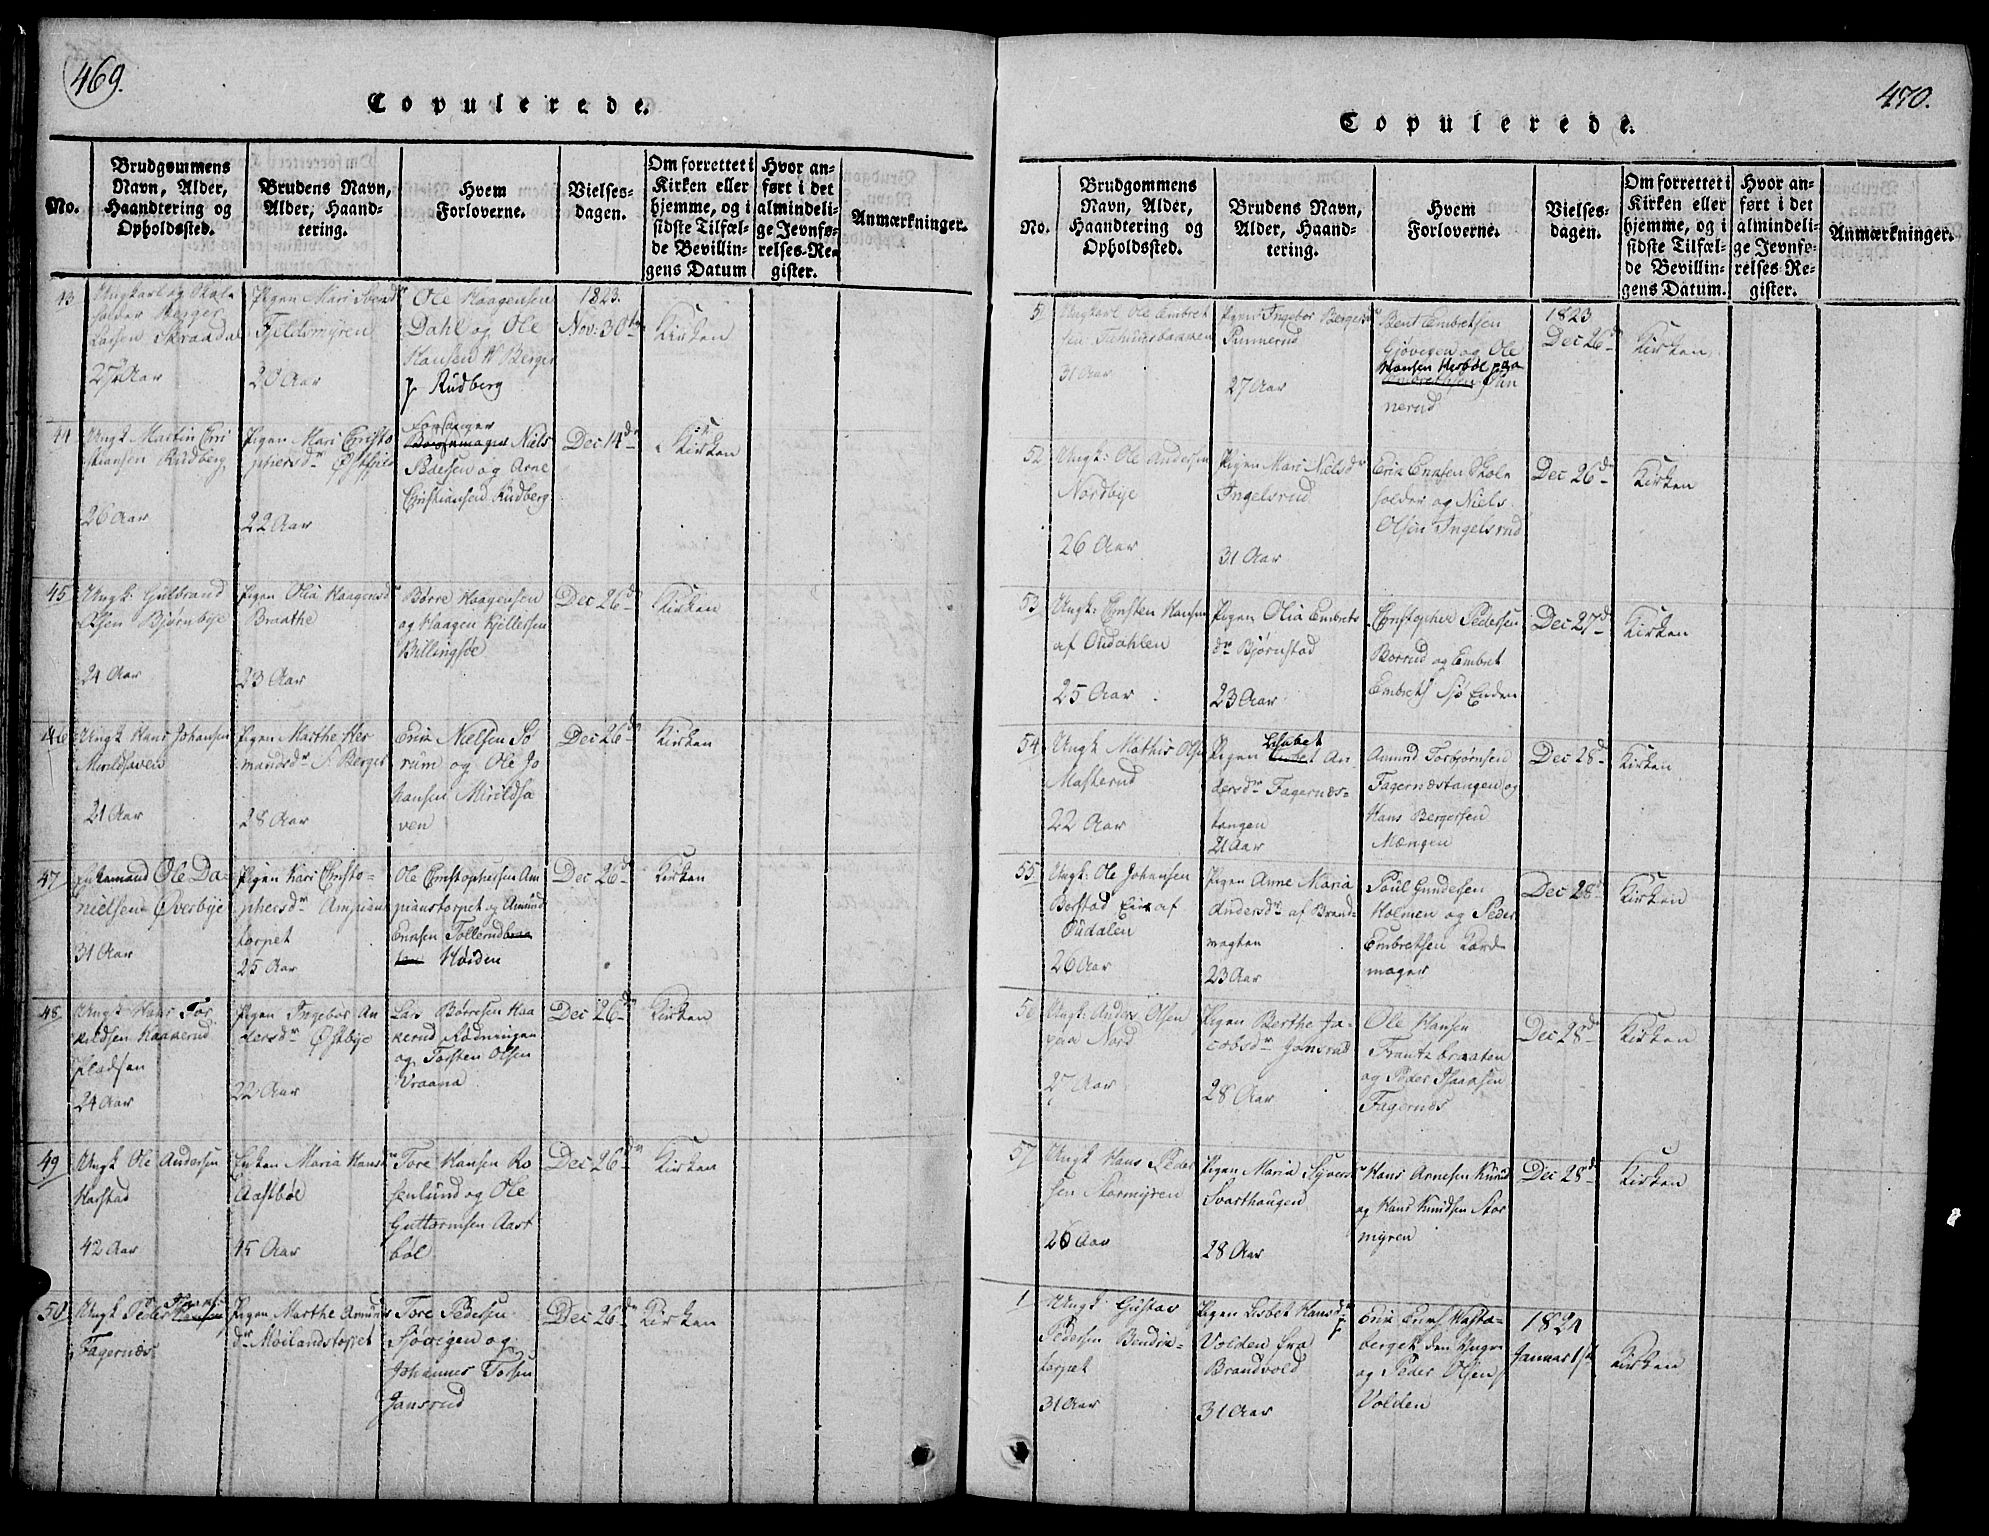 469.
Copulerede.
No.
Brudgommens
Navn, Alder,
Haandtering og
Opholdssted.
Brudens Navn,
Alder, Haand-
tering.
Hvem
Forloverne.
Vielses-
dagen.
Om forrettet i
Kirken eller
hjemme, og i
sidste Tilfæl-
de Bevillin-
gens Datum
Hvor an-
ført i det
almindeli-
ge Jevnfø-
relses-Re-
gister.
Anmærkninger.
43
Ungkarl og Skole
holder Berger
Larsen
27 Aar
Pigen Mari
Fjeldsmyren
20 Aar
Ole Haagensen
Dahl og Ole
Hansen N Berger
p. Rudberg
1823.
Nov: 30te
Kirken
44
Ungk Martin Cri
stiansen Rudberg
26 Aar
Pigen Mari Cristo
phersdr
22 Aar
Forsanger
Niels
Pedersen og Arne
Christiansen Rudberg
Dec 14de
Kirken
45
Ungk: Guldbrand
Olsen Bjørnbye
24 Aar
Pigen Olia Haagensdr
Braathe
23 Aar
Børre Haagensen
og Haagen Kjeldsen
Billingsøe
Dec 26de
Kirken
46
Ungk Hans Johansen
Mirildsaven
21 Aar
Pigen Marthe Her
mandsdr S. Berger
28 Aar
Erik Nielsen So
rum og Ole Jo
hansen Mirildsa
ven
Dec 26de
Kirken
47
Enkemand Ole Da-
nielsen Øverbye
31 Aar
Pigen Kari Cristo-
phersdr Ampians
torpet
25 Aar
Ole Cristophersen Am
pianstorpet og Amund
Ericksen Tollerud
Høiden
Dec 26de
Kirken
48
Ungk Hans Tor
kildsen Haakerud
pladsen
24 Aar
Pigen Ingebor An
dersdr Østbye
22 Aar
Lars Børresen Haa
kerud Rødningen
og Torsten Olsen
Vraana
Dec 26de
Kirken
49
Ungk Ole Andersen
Harstad
42 Aar
Enken Maria Hansdr
Aastbøl
45 Aar
Tore Hansen Ro
senlund og Ole
Guttormsen Aast
bøl
Dec 26de
Kirken
50
Ungk Peder
Fagernæs
Pigen Marthe Amunds
dr Møilandstorpet
Tore Pedersen
Sjøvigen og
Johannes Tosen
Jansrud
Dec 26de
Kirken
470.
Copulerede.
No.
Brudgommens
Navn, Alder,
Haandtering og
Opholdssted.
Brudens Navn,
Alder, Haand-
tering.
Hvem
Forloverne.
Vielses-
dagen.
Om forrettet i
Kirken eller
hjemme, og i
sidste Tilfæl-
de Bevillin-
gens Datum.
Hvor an-
ført i det
almindeli-
ge Jevnfø-
relses-Re-
gister.
Anmærkninger.
51
Ungkarl Ole Embret
sen
31 Aar
Pigen Ingebor Bergersdr
Pinnerud
27 Aar
Bent Embretsen
Gjøvigen og Ole
Hansen Herbøl paa
Pin
nerud
1823
Dec 26de
Kirken
52
Ungk: Ole Andersen
Nordbye
26 Aar
Pigen Mari Nielsdr
Ingelsrud
31 Aar
Erik Ericksen Skole
holder og Niels
Olsen Ingelsrud
Dec 26de
Kirken
53
Ungk: Cristen Hansen
af Oudahlen
25 Aar
Pigen Olia Embrets
dr Bjørnstad
23 Aar
Christopher Pedersen
Borrud og Embret
Embrets Sjø Enden
Dec 27de
Kirken
54
Ungk Mathis Olsen
Masterud
22 Aar
Pigen Lisabet An-
dersdr Fagernæs-
tangen
21 Aar
Amund Torbjørnsen
Fagernæstangen og
Hans Bergersen
Mængen
Dec 28de
Kirken
55
Ungk: Ole Johansen
Berstad Eier af
Oudalen
26 Aar
Pigen Anne Maria
Andersdr af Brand-
vagten
23 Aar
Poul Gundersen
Holmen og Peder
Embretsen Kord-
mager
Dec 28de
Kirken
56
Ungk: Anders Olsen
paa Nord
27 Aar
Pigen Berthe Ja-
cobsdr Jansrud
28 Aar
Ole Hansen
Frantzbraaten
og Peder Isaacsen
Fagernæs
Dec 28de
Kirken
57
Ungk Hans Peder
sen Stormyren
26 Aar
Pigen Maria Syversdr
Svarthaugen
28 Aar
Hans Arnesen Knud
og Hans Knudsen Stor
myren
Dec 28de
Kirken
1
Ungk: Gustav
Pedersen Bendix-
torpet
31 Aar
Pigen Lisbet Hansdr
Volden fra
Brandvold
31 Aar
Erik Ericks Hasta-
berget den Yngre
og Peder Olsen
Volden
1824
Januar 1st
Kirken